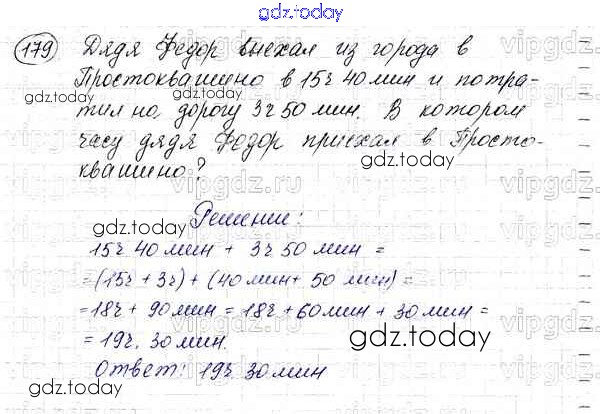 gdz.today
179 Дядя Федор выехал из города в
Простоквашино в 15ч 40 мин и потра-
gdz.today
тил на дорогу 3ч 50 мин. В котором
часу дядя Федор приехал в Просто-
gdz.today
квашино?
gdz.today
Решение:
15ч 40 мин + 3ч 50 мин =
= (15ч + 3ч) + (40 мин + 50 мин) =
= 18ч + 90 мин = 18ч + 60 мин + 30 мин =
= 19ч. 30 мин.
gdz.today
Ответ: 19ч 30 мин
gdz.today
vipgdz.ru